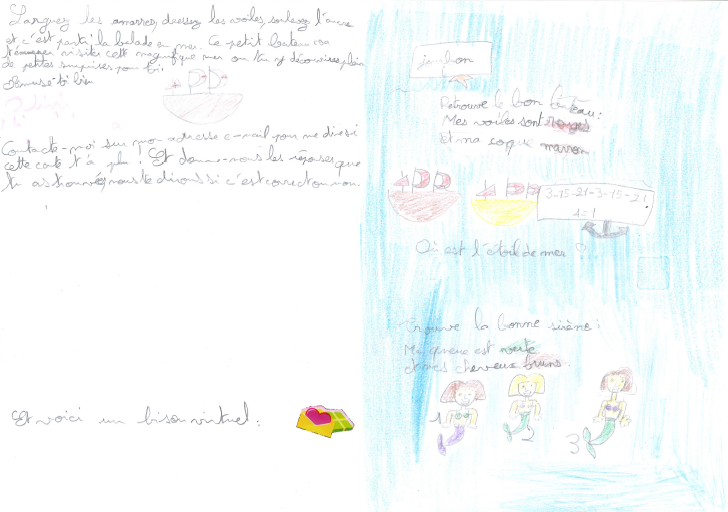 Larguez les amarres, dressez les voiles, soulevez l'ancre
et c'est parti la balade en mer. Ce petit bateau va
t'emmener visiter cette magnifique mer où tu y découvriras plein
de petites surprises pour toi.
Amuse-t-bi
Contacte-moi sur mon adresse e-mail pour me dire si
cette carte t'a plu ! Et donne-nous les réponses que
tu as trouvées, nous te dirons si c'est correct ou non.
Et voici un bisou virtuel :
jambon
Retrouve le bon bateau :
Mes voiles sont rouges
et ma coque marron
3-15-21-3-15-21
1=1
Où est l'étoile de mer ?
Trouve la bonne sirène :
Ma queue est verte
et mes cheveux bruns.
1 2 3